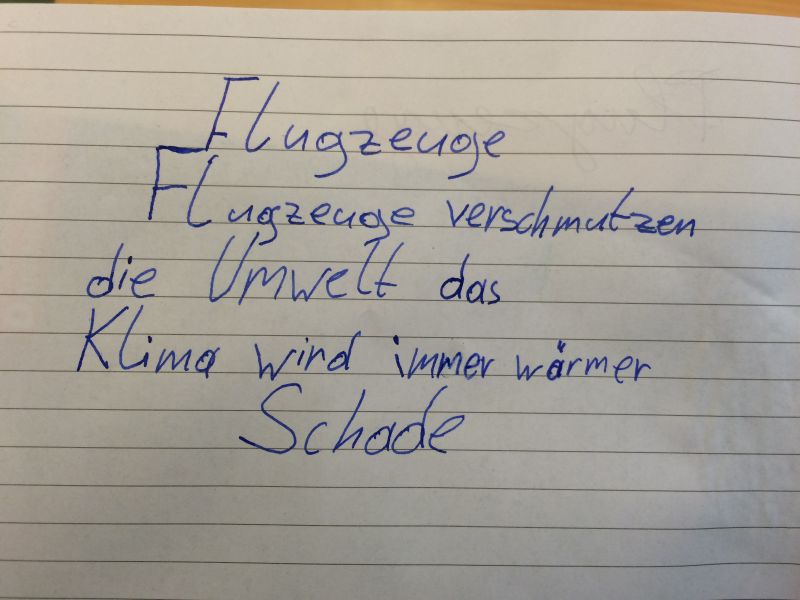 Flugzeuge
Flugzeuge verschmutzen
die Umwelt das
Klima wird immer wärmer
Schade